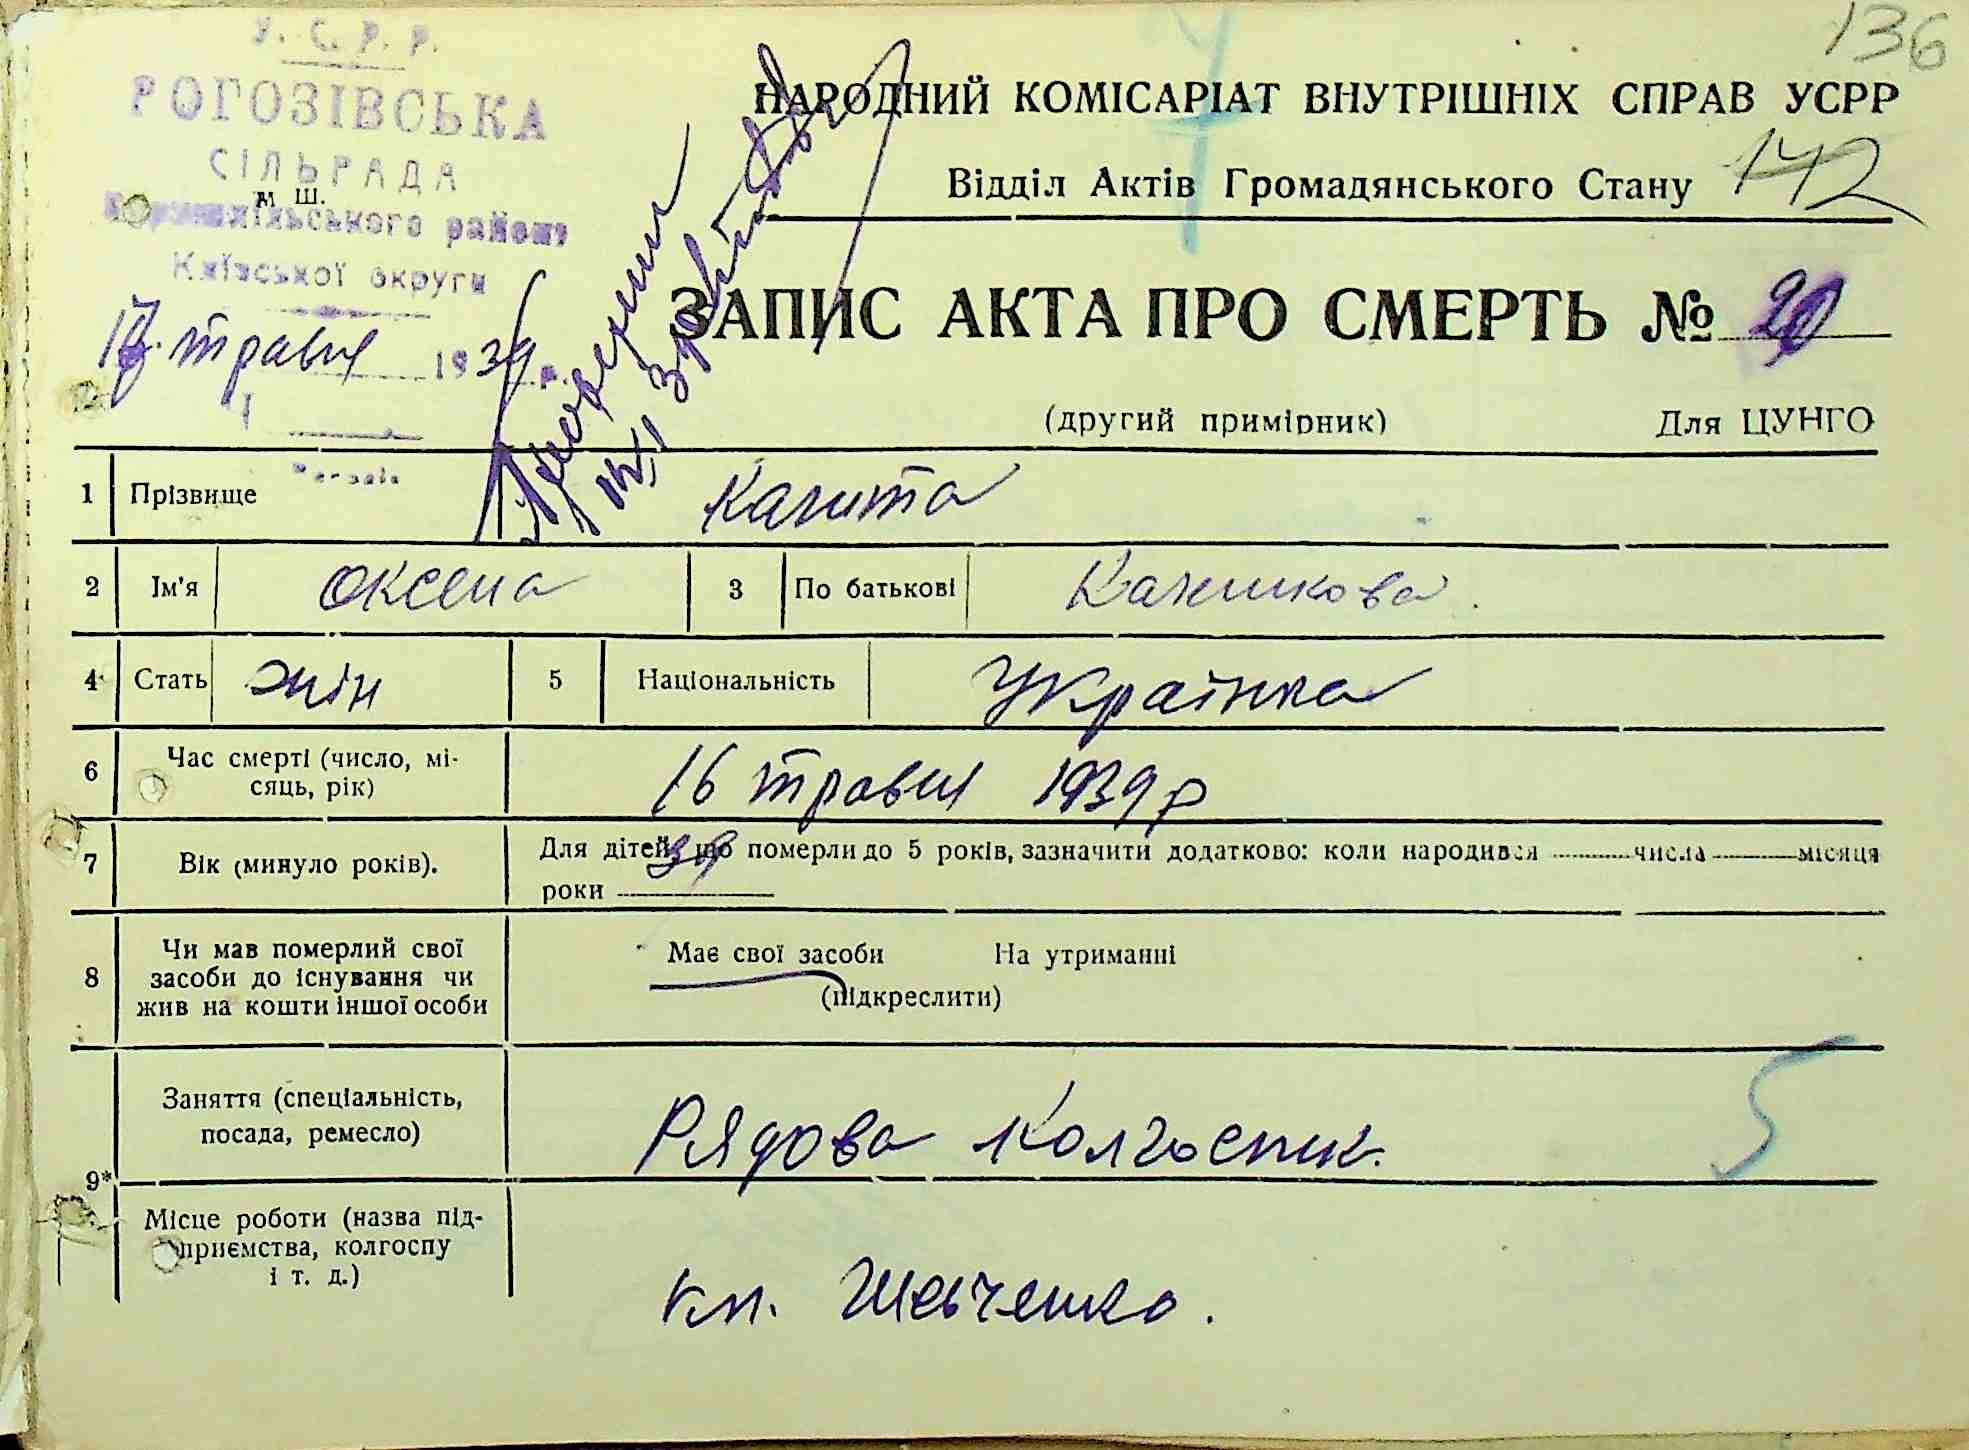 136
У. С. Р. Р.
РОГОЗІВСЬКА
СІЛЬРАДА
м Ш.
району
Київської округи
травня 1939 р.
НАРОДНИЙ КОМІСАРІАТ ВНУТРІШНІХ СПРАВ УСРР
Відділ Актів Громадянського Стану 142
ЗАПИС АКТА ПРО СМЕРТЬ № 20
(другий примірник) Для ЦУНГО
1 Прізвище Калита
2 Ім'я Оксена 3 По батькові
4 Стать жін 5 Національність Українка
6 Час смерті (число, мі-
сяць, рік) 16 травня 1939 р
7 Вік (минуло років). 39 Для дітей, що померли до 5 років, зазначити додатково: коли народився числа місяця
роки
8 Чи мав померлий свої
засоби до існування чи
жив на кошти іншої особи
Має свої засоби На утриманні
(підкреслити)
9* Заняття (спеціальність,
посада, ремесло) Рядова колгоспник.
Місце роботи (назва під-
приємства, колгоспу
і т. д.)
Шевченко.
5